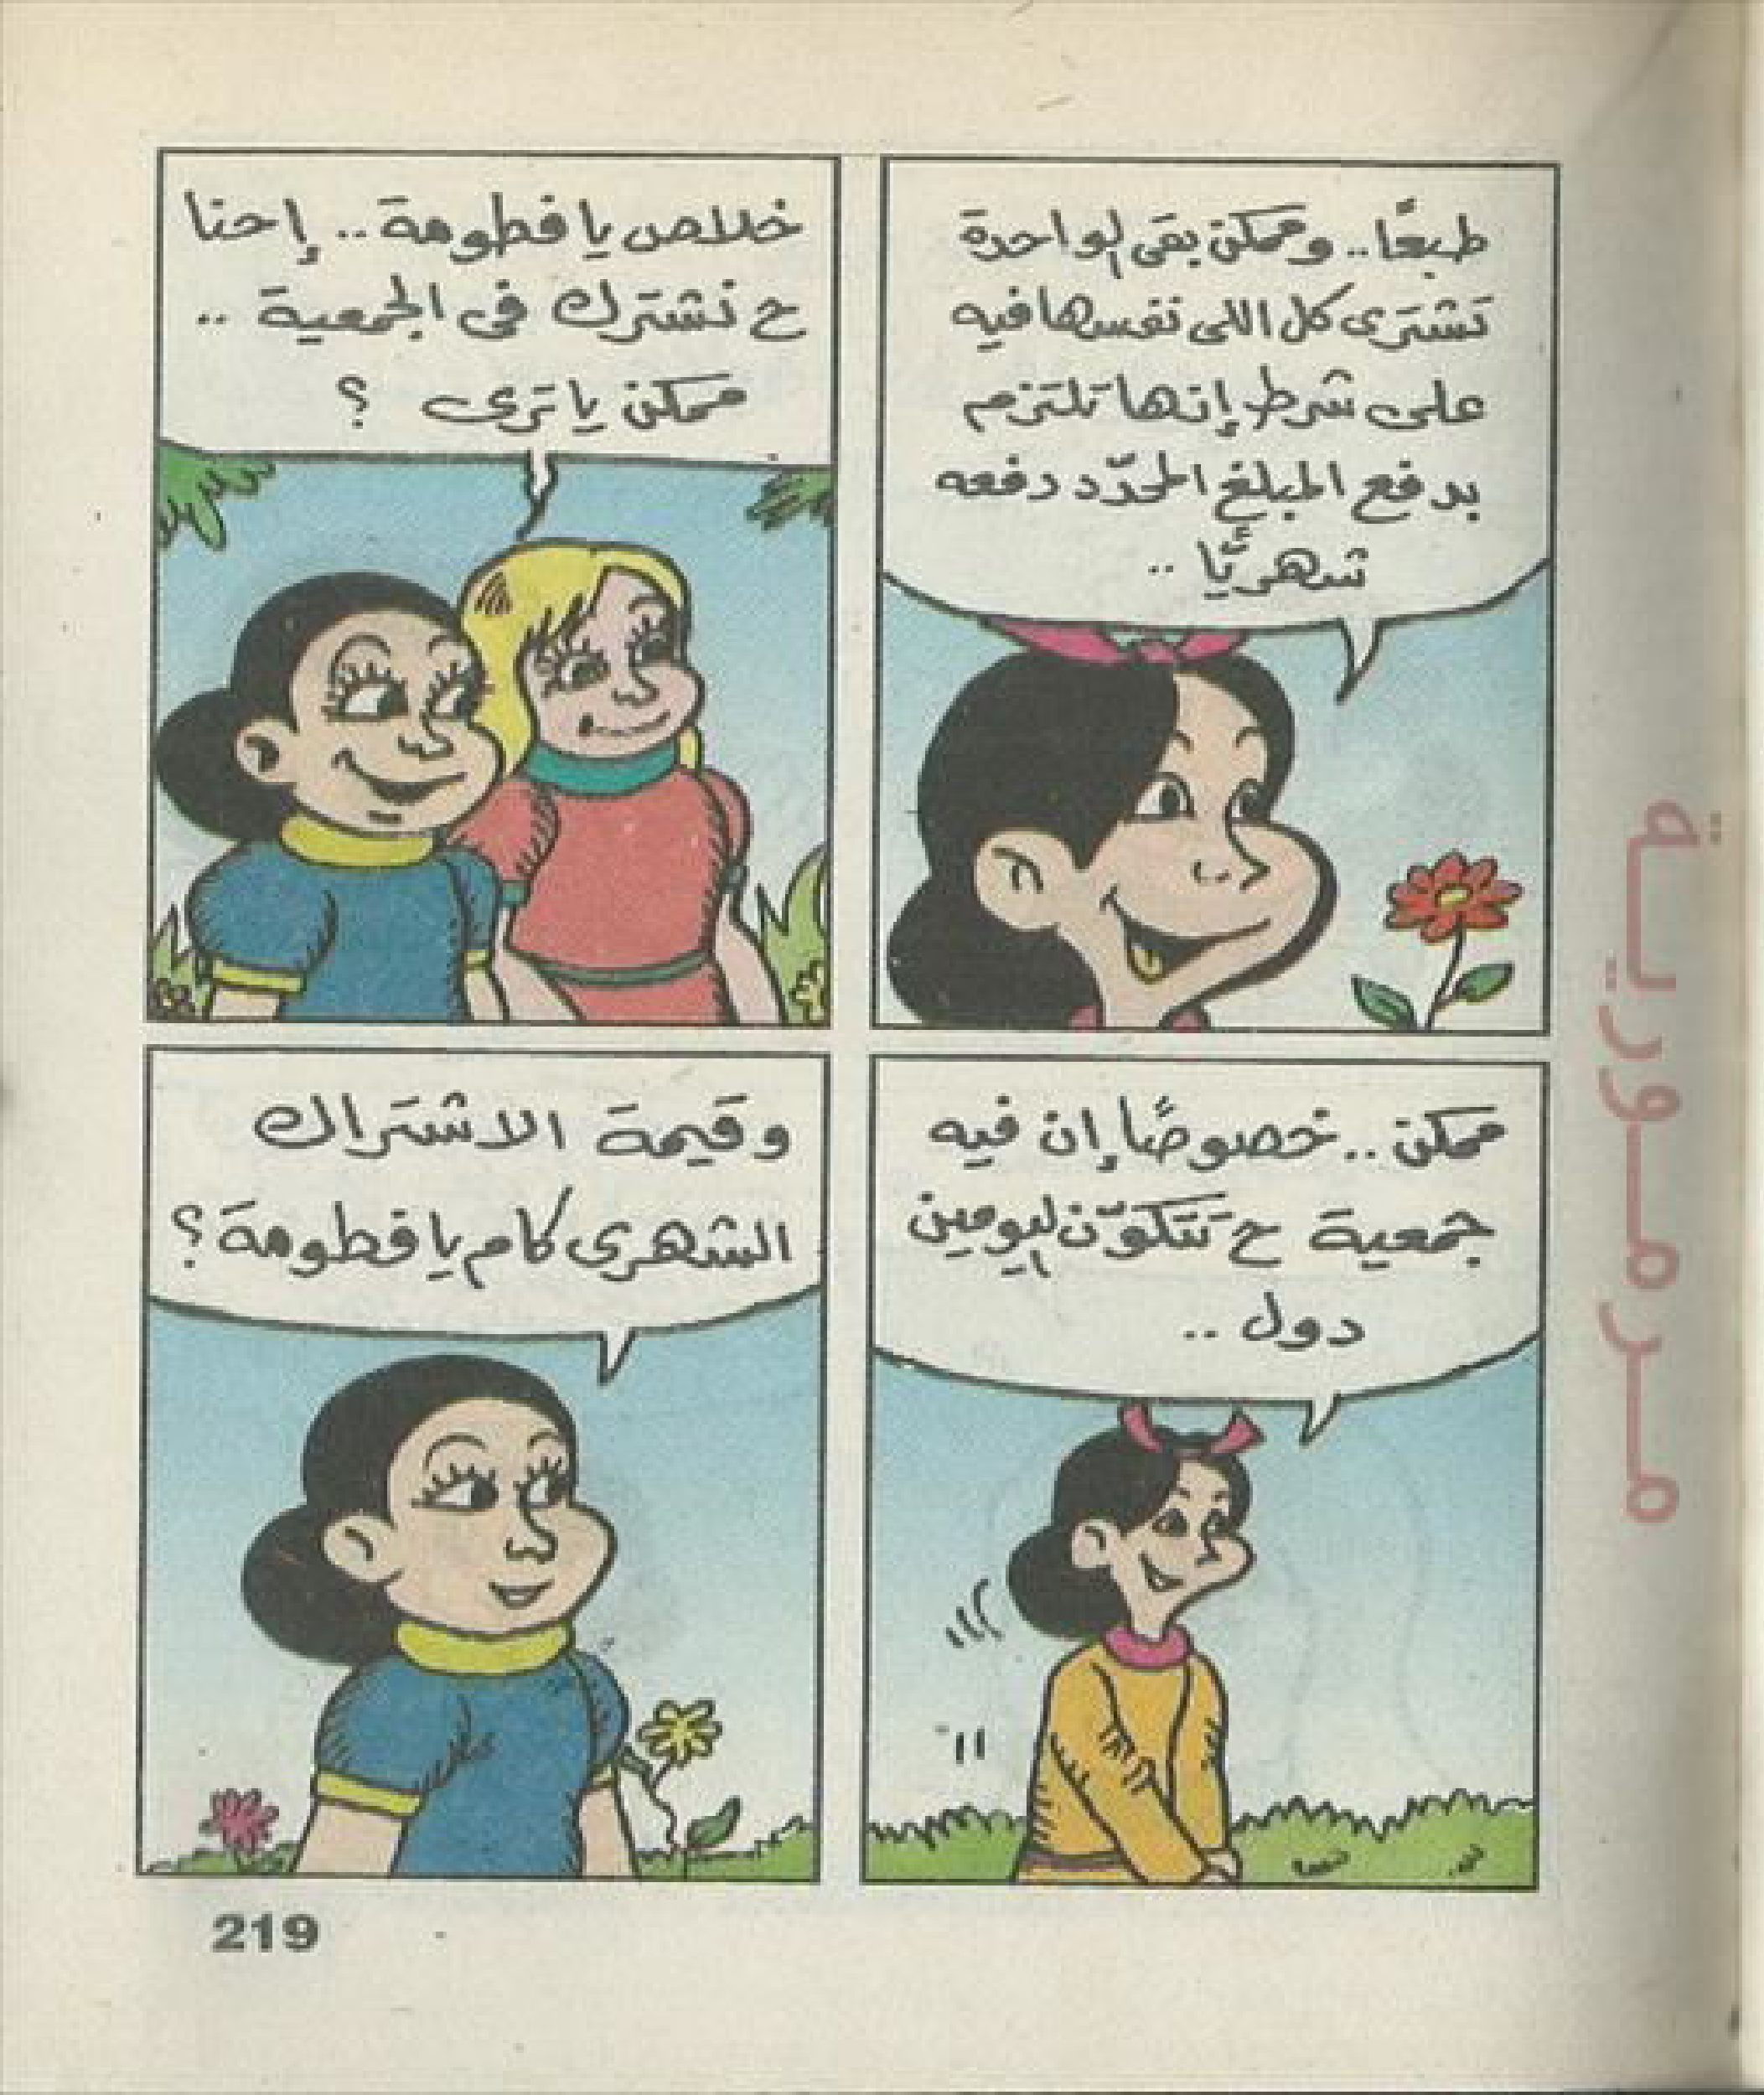 طبعًا.. وممكن بقى الواحدة
تشترى كل اللى نفسها فيه
على شرط إنها تلتزم
بدفع المبلغ المحدّد دفعه
شهريًّا ..
خلاص يا فطومة.. إحنا
ح نشترك فى الجمعية ..
ممكن يا ترى ؟
ممكن .. خصوصًا إن فيه
جمعية ح تتكوّن اليومين
دول ..
وقيمة الاشتراك
الشهرى كام يا فطومة؟
219
مرمورية